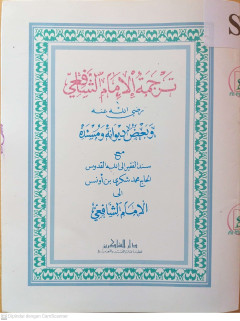 ترجمة الإمام الشافعي
رضي الله عنه
وبعض ديوانه ومسنده
مع
سند الفقير إلى الله القدوس
الحاج محمد شكري بن أونس
إلى
الإمام الشافعي
S